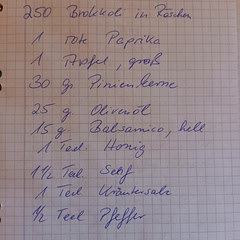 250 Brokkoli in Röschen
1 rote Paprika
1 Apfel, groß
30 g Pinienkerne
25 g Olivenöl
15 g Balsamico, hell
1 Teel Honig
1 1/2 Teel Senf
1 Teel Kräutersalz
1/2 Teel Pfeffer